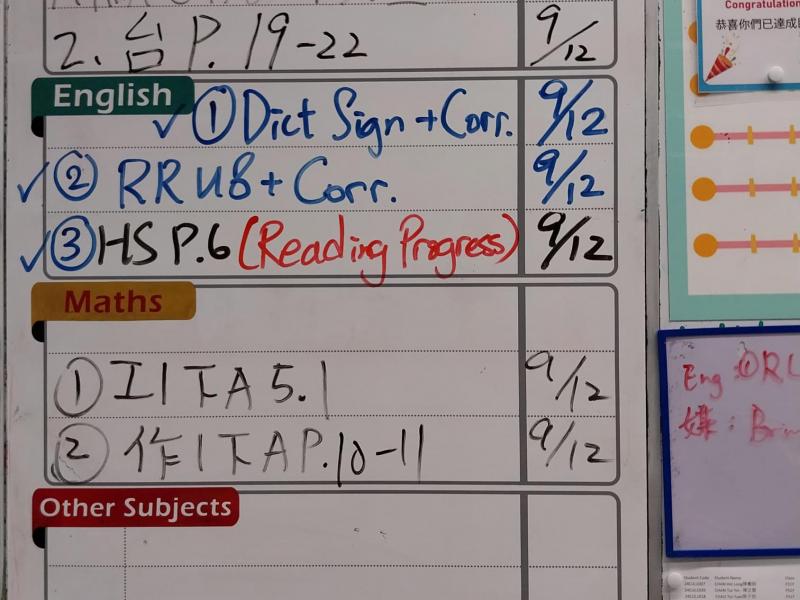 2. 台 P. 19-22 9/12
English
① Dict Sign + Corr. 9/12
② RRUB + Corr. 9/12
③ HS P.6 (Reading Progress) 9/12
Maths
① 工1下A 5.1 9/12
② 作1下A P.10-11 9/12
Other Subjects
Congratulation
恭喜你們已達成
Eng: ① RL
Student Code Student Name Class